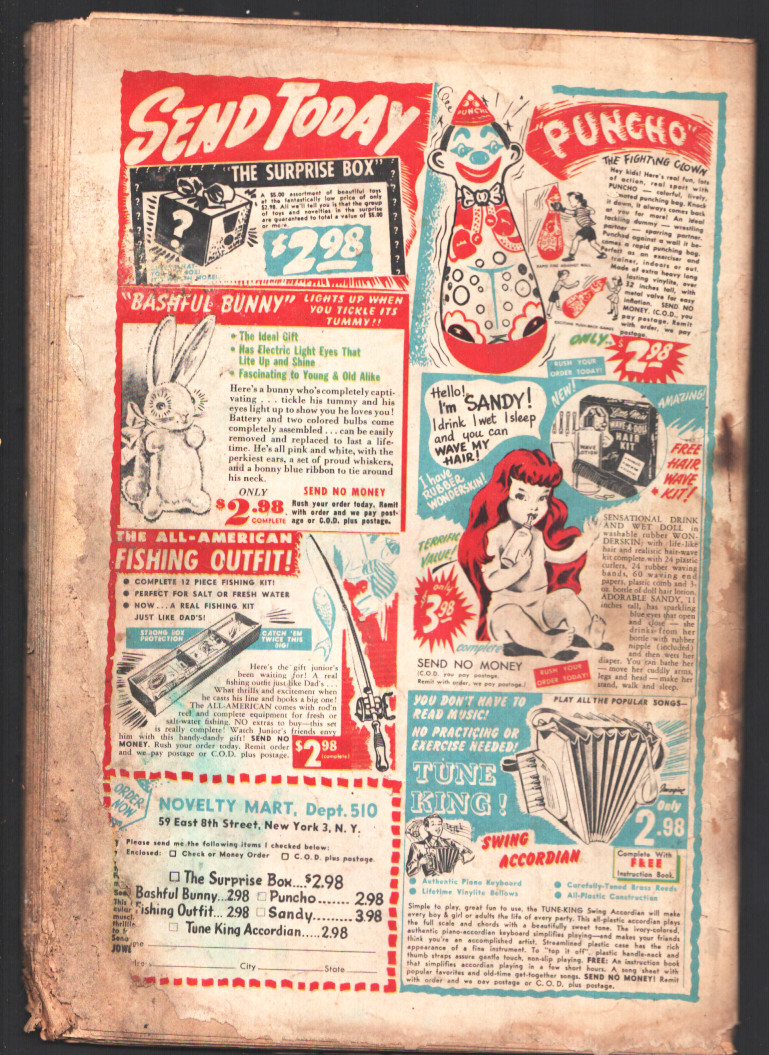 SEND TODAY
"THE SURPRISE BOX"
?
A $5.00 assortment of beautiful toys
at the fantastically low price of only
$2.98. All we'll tell you is that the group
of toys and novelties in the surprise
are guaranteed to total a value of $5.00
or more.
$2.98
"BASHFUL BUNNY" LIGHTS UP WHEN
YOU TICKLE ITS
TUMMY!!
• The Ideal Gift
• Has Electric Light Eyes That
Lite Up and Shine
• Fascinating to Young & Old Alike
Here's a bunny who's completely capti-
vating . . . tickle his tummy and his
eyes light up to show you he loves you!
Battery and two colored bulbs come
completely assembled . . . can be easily
removed and replaced to last a life-
time. He's all pink and white, with the
perkiest ears, a set of proud whiskers,
and a bonny blue ribbon to tie around
his neck.
ONLY
$2.98
COMPLETE
SEND NO MONEY
Rush your order today. Remit
with order and we pay post-
age or C.O.D. plus postage.
THE ALL-AMERICAN
FISHING OUTFIT!
• COMPLETE 12 PIECE FISHING KIT!
• PERFECT FOR SALT OR FRESH WATER
• NOW... A REAL FISHING KIT
JUST LIKE DAD'S!
STRONG BOX
PROTECTION
CATCH 'EM
TWICE THIS
BIG!
Here's the gift junior's
been waiting for! A real
fishing outfit just like Dad's . . .
What thrills and excitement when
he casts his line and hooks a big one!
The ALL-AMERICAN comes with rod'n
reel and complete equipment for fresh or
saltwater fishing. NO extras to buy—this set
is really complete! Watch Junior's friends envy
him with this handy-dandy gift! SEND NO
MONEY. Rush your order today. Remit order
and we pay postage or C.O.D. plus postage.
$2.98
(complete)
ORDER
NOW
NOVELTY MART, Dept. 510
59 East 8th Street, New York 3, N. Y.
Please send me the following items I checked below:
Enclosed: □ Check or Money Order □ C.O.D. plus postage.
□ The Surprise Box....$2.98
Bashful Bunny...2.98 □ Puncho....... 2.98
Fishing Outfit... 2.98 □ Sandy........ 3.98
□ Tune King Accordian.....2.98
City State
PUNCHO
"PUNCHO"
THE FIGHTING CLOWN
Hey kids! Here's real fun, lots
of action, real sport with
PUNCHO — colorful, lively,
noted punching bag. Knock
it down, it always comes back
at you for more! An ideal
tackling dummy — wrestling
partner — sparring partner.
Punched against a wall it be-
comes a rapid punching bag.
Perfect as an exerciser and
trainer, indoors or out.
Made of extra heavy long
lasting vinylite, over
metal valve for easy
inflation. SEND NO
MONEY. (C.O.D. you
pay postage. Remit
with order, we pay
postage.
ONLY..
$2.98
RUSH YOUR
ORDER TODAY!
Hello!
I'm SANDY!
I drink I wet I sleep
and you can
WAVE MY
HAIR!
I have
RUBBER
WONDERSKIN!
NEW!
AMAZING!
WAVE
LOTION
WAVE-A-DOLL
HAIR
KIT
FREE
HAIR
WAVE
KIT!
TERRIFIC
VALUE!
only
$3.98
complete
SENSATIONAL DRINK
AND WET DOLL in
washable rubber WON-
DERSKIN with life-like
hair and realistic hair-wave
kit complete with 24 plastic
curlers, 24 rubber waving
bands, 60 waving end
papers, plastic comb and 3-
oz. bottle of doll hair lotion.
ADORABLE SANDY, 11
inches tall, has sparkling
blue eyes that open
and close — she
drinks from her
bottle with rubber
nipple (included)
and then wets her
diaper. You can bathe her
— move her cuddly arms,
legs and head — make her
stand, walk and sleep.
SEND NO MONEY
(C.O.D. you pay postage.
Remit with order, we pay postage.)
RUSH YOUR
ORDER TODAY!
YOU DON'T HAVE TO
READ MUSIC!
NO PRACTICING OR
EXERCISE NEEDED!
PLAY ALL THE POPULAR SONGS—
TUNE
KING!
SWING
ACCORDIAN
Only
2.98
Complete With
FREE
Instruction Book.
• Authentic Piano Keyboard
• Lifetime Vinylite Bellows
• Carefully-Tuned Brass Reeds
• All-Plastic Construction
Simple to play, great fun to use, the TUNE-KING Swing Accordian will make
every boy & girl or adults the life of every party. This all-plastic accordian plays
the full scale and chords with a beautifully sweet tone. The ivory-colored,
authentic piano-accordian keyboard simplifies playing—and makes your friends
think you're an accomplished artist. Streamlined plastic case has the rich
appearance of a fine instrument. To "top it off", plastic handle-neck and
thumb straps assure gentle touch, non-slip playing. FREE: An instruction book
that simplifies accordian playing in a few short hours. A song sheet with
popular favorites and old-time get-together songs. SEND NO MONEY! Remit
with order and we pay postage or C.O.D. plus postage.